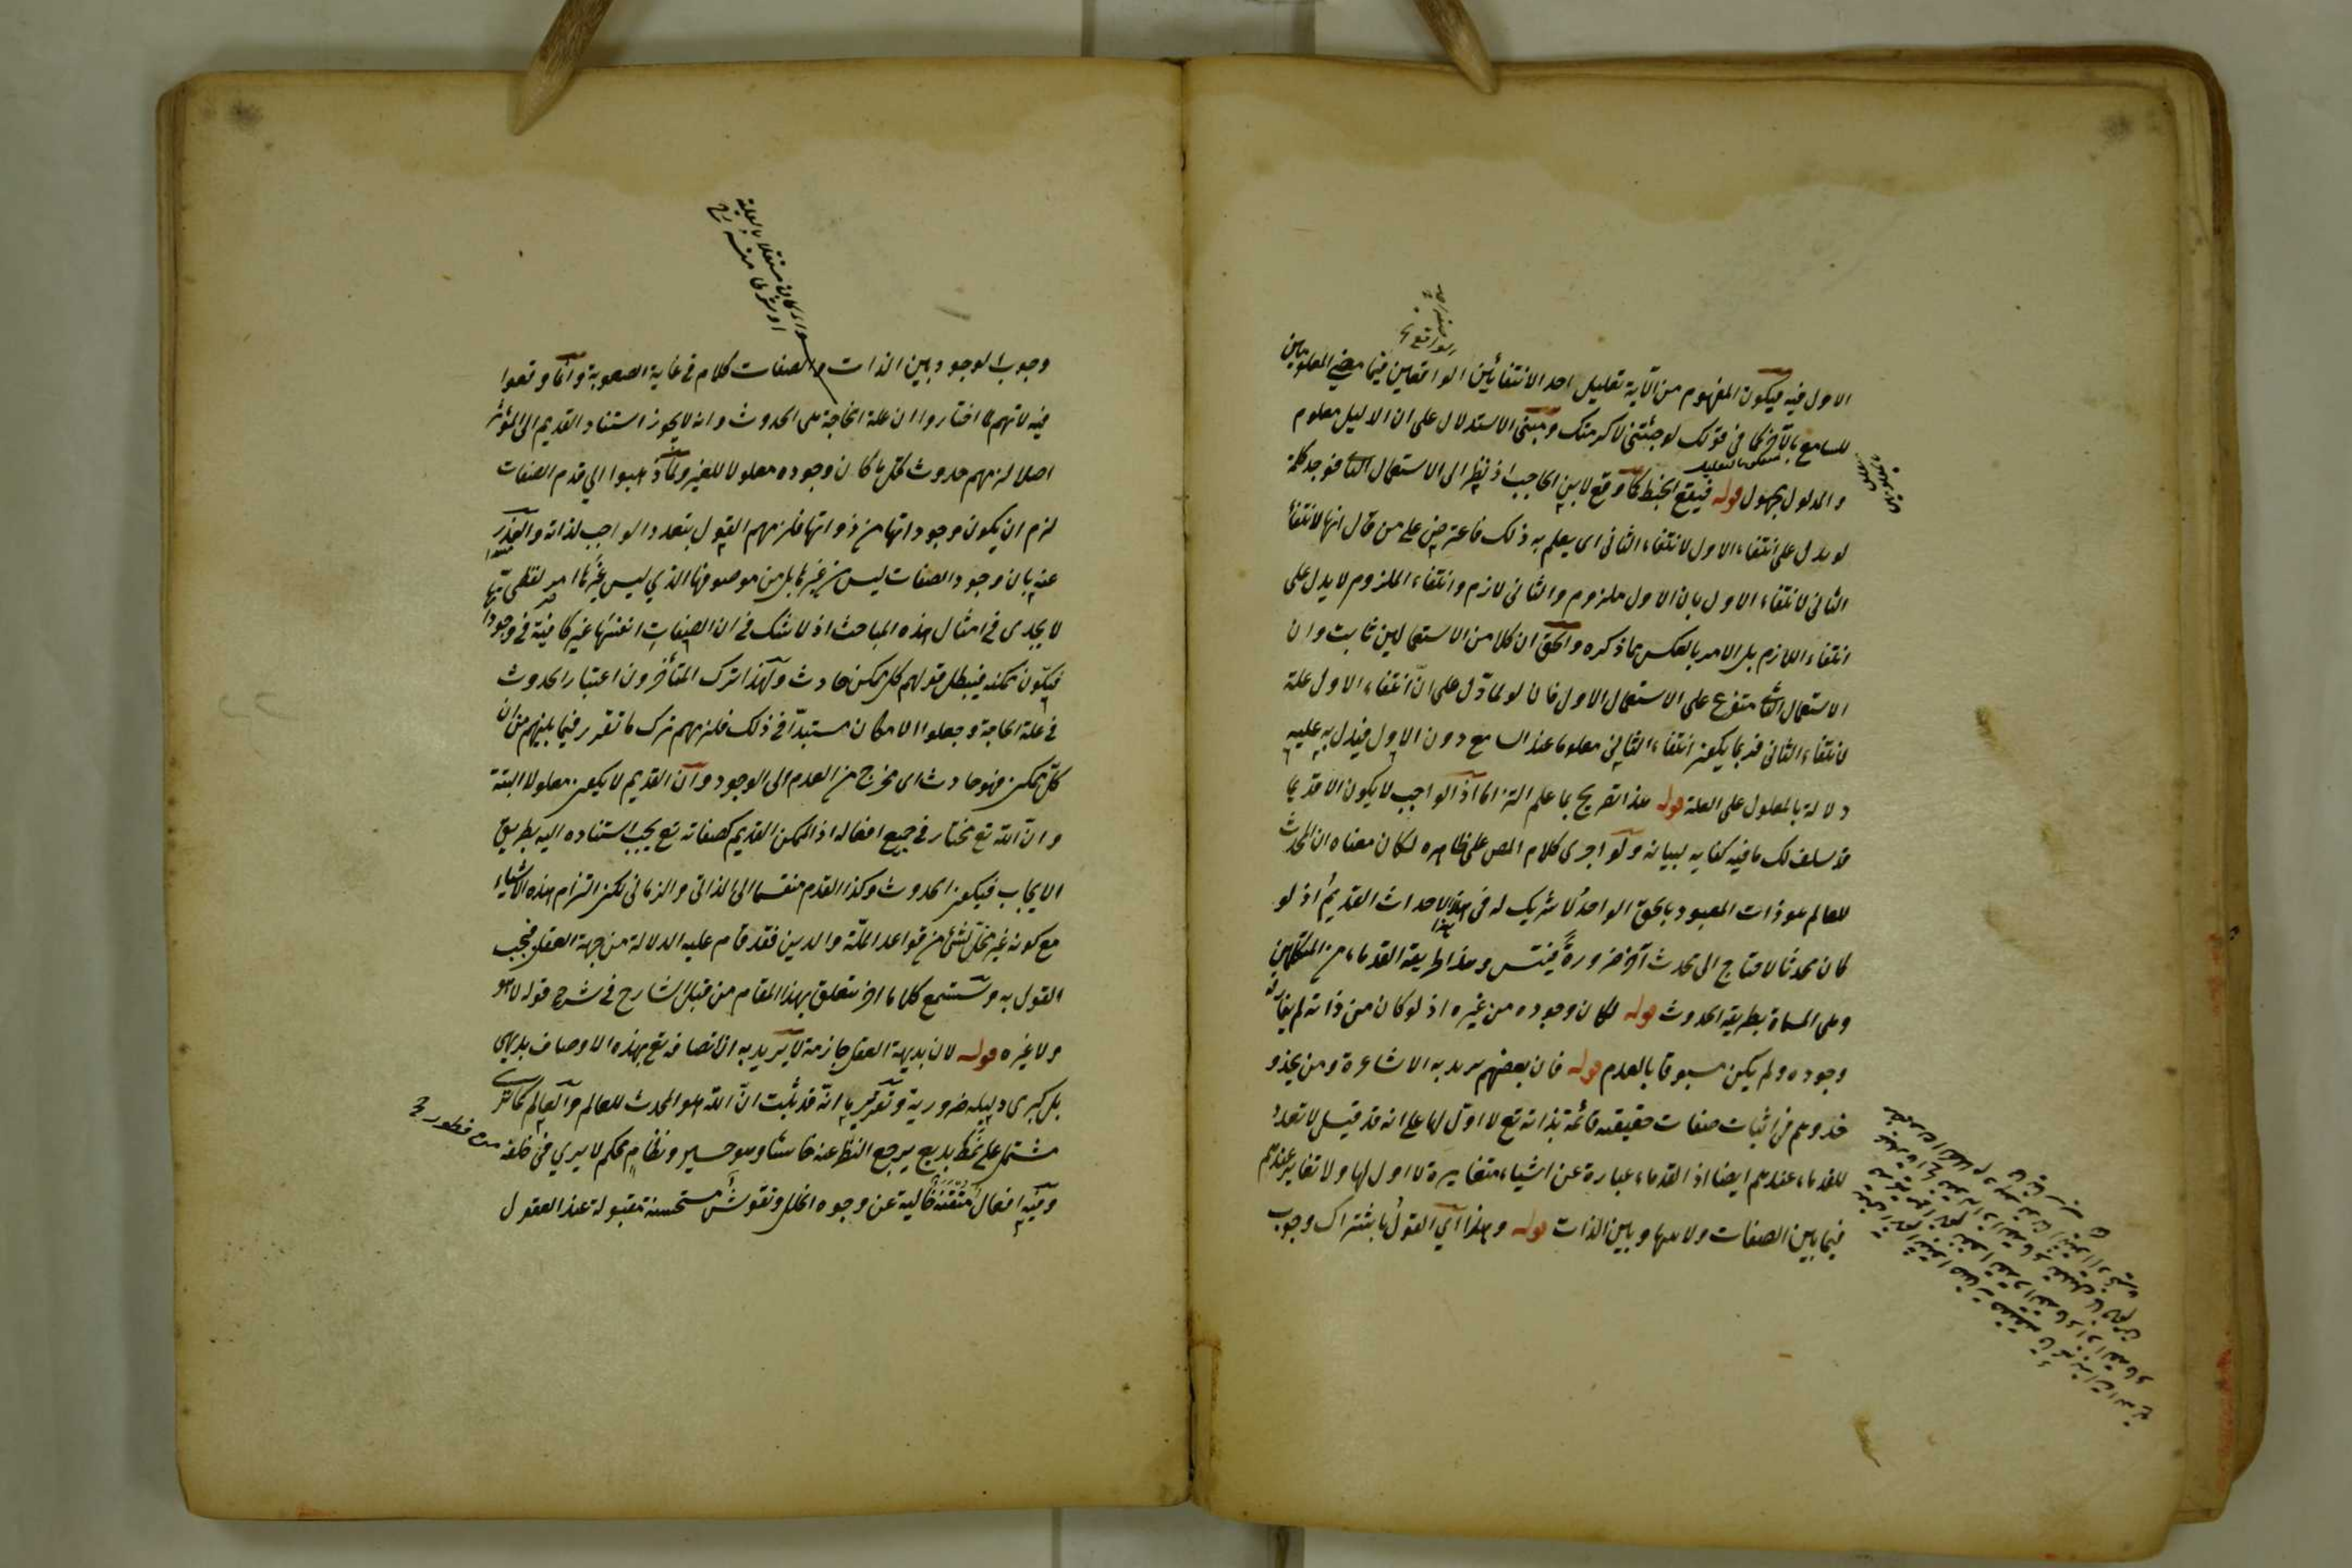 الاول فيه فيكون المفهوم من الآية تعليل احد الانتفائين الواقعين فيما مضى المعلومين
للسامع بالآخر كما فى قولك لو جئتنى لاكرمتك ومبنى الاستدلال على ان الدليل معلوم
والمدلول مجهول قوله فيقع الخبط كما وقع لابن الحاجب اذ نظر الى الاستعمال الثانى فوجد كلمة
لو تدل على انتفاء الاول لانتفاء الثانى اى يعلم به ذلك فاعترض على من قال انها لانتفاء
الثانى لانتفاء الاول بان الاول ملزوم والثانى لازم وانتفاء الملزوم لا يدل على
انتفاء اللازم بل الامر بالعكس مما ذكره والحق ان كلا من الاستعمالين ثابت وان
الاستعمال الثانى متفرع على الاستعمال الاول فان لو لما دل على ان انتفاء الاول علة
لانتفاء الثانى فربما يكون انتفاء الثانى معلوما عند السامع دون الاول فيدل به عليه
دلالة بالمعلول على العلة قوله هذا تصريح بما علم التزاما اذ الواجب لا يكون الا قديما
قد سلف لك ما فيه كفاية لبيانه ولو اجرى كلام المص على ظاهره لكان معناه ان المحدث
للعالم هو ذات المعبود بالحق الواحد لا شريك له فى هذا الاحداث القديم اذ لو
كان محدثا لاحتاج الى محدث آخر ضرورة وهذا طريقة القدماء من المتكلمين
وهى المسماة بطريقة الحدوث قوله لكان وجوده من غيره اذ لو كان من ذاته لم يفارقه
وجوده ولم يكن مسبوقا بالعدم قوله فان بعضهم يريد به الاشاعرة ومن يحذو
حذوهم فى اثبات صفات حقيقية قائمة بذاته تع لا اول لها على انه قد قيل لا تعدد
للقدماء عندهم ايضا اذ القدماء عبارة عن اشياء متغايرة لا اول لها ولا تغاير عندهم
فيما بين الصفات ولا بينها وبين الذات قوله وهذا اى القول باشتراك وجوب
سواء كان مستقلا بالعلية
او شرطا منه
وجوب الوجود بين الذات والصفات كلام فى غاية الصعوبة وانما وقعوا
فيه لانهم لما اختاروا ان علة الحاجة هى الحدوث وانه لا يجوز استناد القديم الى المؤثر
اصلا لزمهم حدوث كل ما كان وجوده معلولا للغير ولما ذهبوا الى قدم الصفات
لزم ان يكون وجوداتها من ذواتها فلزمهم القول بتعدد الواجب لذاته والعذر
عنه بان وجود الصفات ليس من غيرها بل من موصوفها الذى ليس غيرها امر لفظى
لا يجدى فى امثال هذه المباحث اذ لا شك فى ان الصفات انفسها غير كافية فى وجودها
فيكون ممكنه فيبطل قولهم كل ممكن حادث ولهذا ترك المتأخرون اعتبار الحدوث
فى علة الحاجة وجعلوا الامكان مستبدا فى ذلك فلزمهم ترك ما تقرر فيما بينهم من ان
كل ممكن فهو حادث اى مخرج من العدم الى الوجود وان القديم لا يكون معلولا البتة
وان الله تع مختار فى جميع افعاله اذ الممكن القديم كصفاته تع يجب استناده اليه بطريق
الايجاب فيكون الحدوث وكذا القدم منقسما الى الذاتى والزمانى لكن التزام هذه الاشياء
مع كونه غير مخل بشئ من قواعد الملة والدين فقد قام عليه الدلالة من جهة العقل فيجب
القول به وستسمع كلاما آخر متعلق بهذا المقام من قبل الشارح فى شرح قوله لا هو
ولا غيره قوله لان بديهة العقل جازمة لا يريد به ان اتصافه تع بهذه الاوصاف بديهى
بل كبرى دليله ضرورية وتقريره انه قد ثبت ان الله هو المحدث للعالم والعالم كما ترى
مشتمل على نمط بديع يرجع النظر عنه خاسئا وهو حسير ونظام محكم لا يرى فى خلقه من فطور
وفيه افعال متقنة خالية عن وجوه الخلل ونقوش مستحسنة مقبولة عند العقول